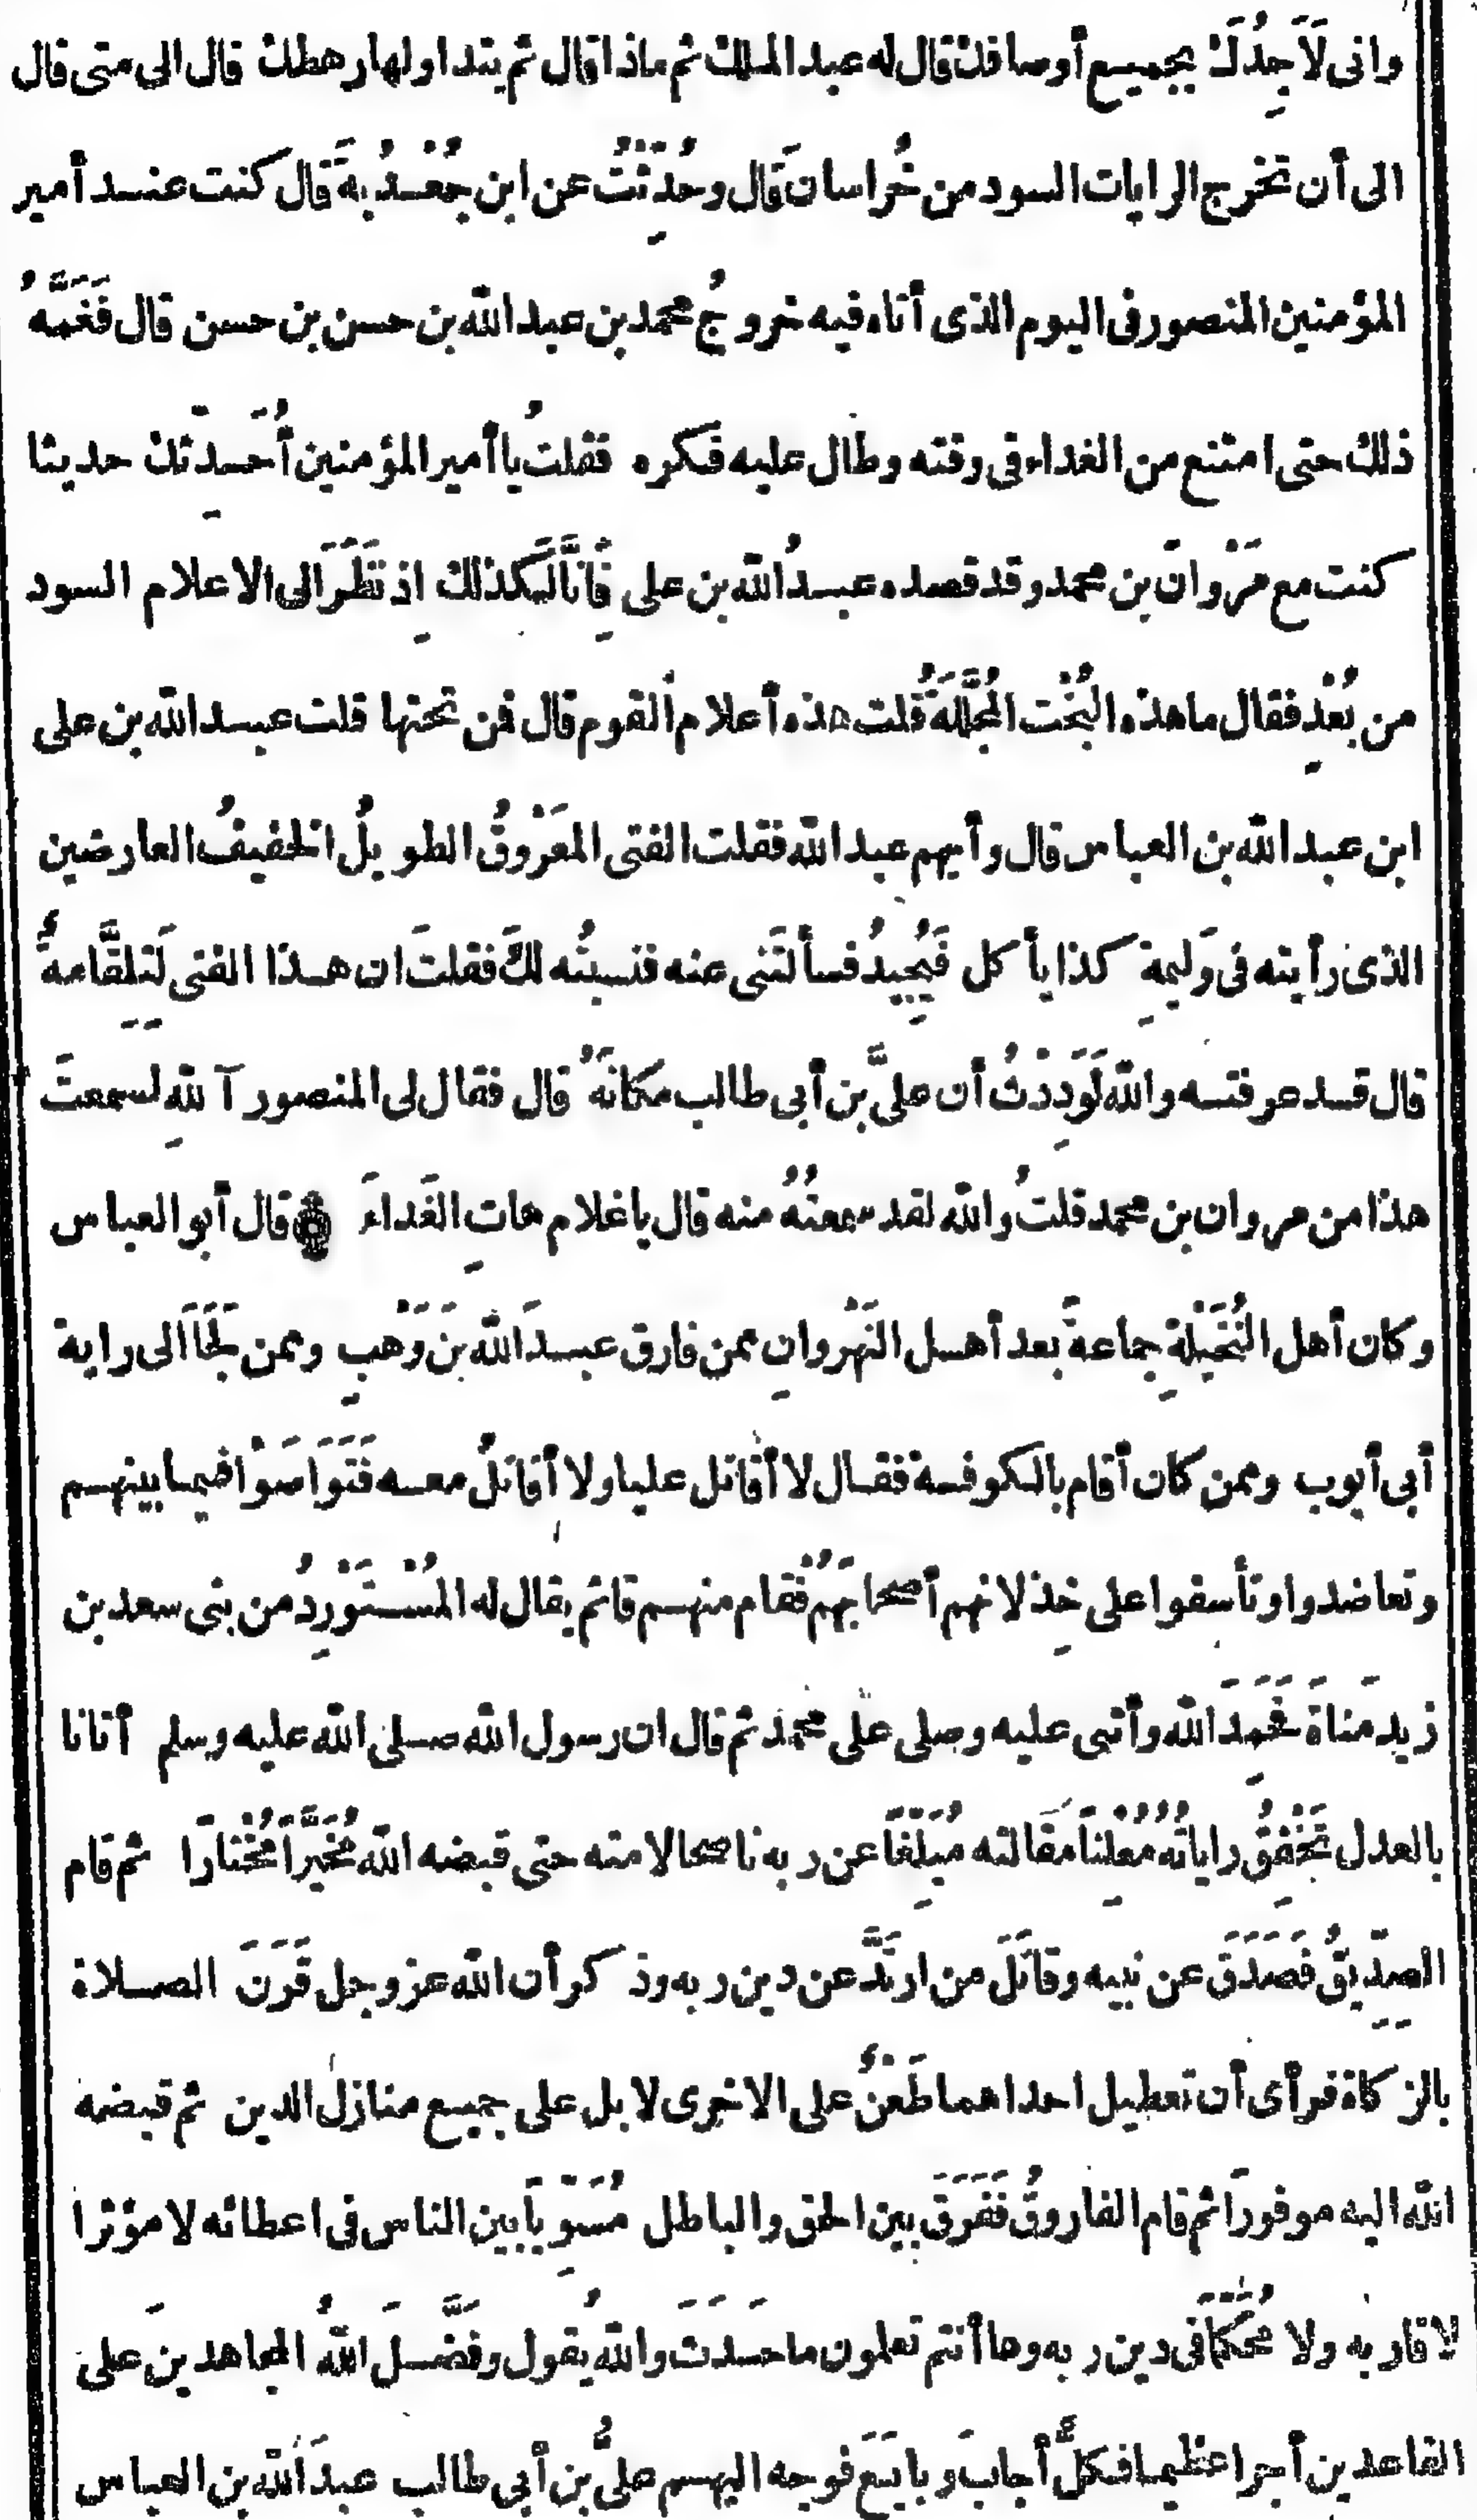 وانى لَاَجِدُكَ بجميع أوصافك قال له عبد الملك ثم ماذا قال ثم يتداولها رهطك قال الى متى قال
الى أن تخرج الرايات السود من خُراسان قال وحُدِّثْتُ عن ابن جُعْدُبةَ قال كنت عند أمير
المؤمنين المنصور فى اليوم الذى أتاه فيه خروجُ محمد بن عبد الله بن حسن بن حسن قال فَغَمَّهُ
ذلك حتى امتنع من الغداء فى وقته وطال عليه فكره فقلتُ يا أمير المؤمنين أُحَدِّثك حديثا
كنت مع مَرْوانَ بن محمد وقد قصده عبدُ الله بن على فَاِنَّا لَكذلك اِذ نَظَرَ الى الاعلام السود
من بُعْدٍ فقال ما هذه البُخْت المُجَلَّلَةُ قُلت هذه أعلام القوم قال فمن تحتها قلت عبد الله بن على
ابن عبد الله بن العباس قال وأيهم عبد الله فقلت الفتى المَعْرُوقُ الطويلُ الخفيفُ العارضين
الذى رأيته فى وَليمةِ كذا يأكل فَيُجِيدُ فسألتَنى عنه فنسبتُه لكَ فقلتَ ان هذا الفتى لَتِلِقَّامةٌ
قال قد عرفته والله لَوَدِدْتُ أن علىَّ بن أبى طالب مكانَهُ قال فقال لى المنصور آللهِ لسمعتَ
هذا من مروان بن محمد قلتُ والله لقد سمعتُهُ منه قال يا غلام هاتِ الغَداءَ ۞ قال أبو العباس
وكان أهل النُّخَيْلةِ جماعةً بعد أهل النَهْروانِ ممن فارق عبدَ الله بنَ وَهْبٍ وممن لَجَأَ الى راية
أبى أيوب وممن كان أقام بالكوفة فقال لا أقاتل عليا ولا أقاتلُ معه فَتَوَاصَوْا فيما بينهم
وتعاضدوا وتأسفوا على خِذلانهم أصحابَهُمْ فقام منهم قائم يقال له المُسْتَوْرِدُ من بنى سعد بن
زيد مَناةَ فَحَمِدَ الله وأثنى عليه وصلى على محمد ثم قال ان رسول الله صلى الله عليه وسلم أتانا
بالعدل تَخْفِقُ راياتُهُ مُعْلِناً مَقالته مُبَلِّغاً عن ربه ناصحا لامته حتى قبضه الله مُخَيَّراً مُخْتاراً ثم قام
الصِدِّيقُ فَصَدَقَ عن نبيه وقاتَلَ من ارتَدَّ عن دين ربه وذكر أن الله عز وجل قَرَنَ الصلاة
بالزكاة فرأى أن تعطيل احداهما طَعْنٌ على الاخرى لا بل على جميع منازل الدين ثم قبضه
الله اليه موفوراً ثم قام الفاروقُ فَفَرَقَ بين الحق والباطل مُسَوِّياً بين الناس فى اعطائه لا مؤثرا
لاقاربه ولا مُحَكَّماً فى دين ربه وها أنتم تعلمون ما حَدَثَ واللهُ يقول وفَضَّلَ اللهُ المجاهدينَ على
القاعدين أجرا عظيما فكلٌّ أجابَ وبايَعَ فوجه اليهم علىُّ بن أبى طالب عبدَ الله بن العباس